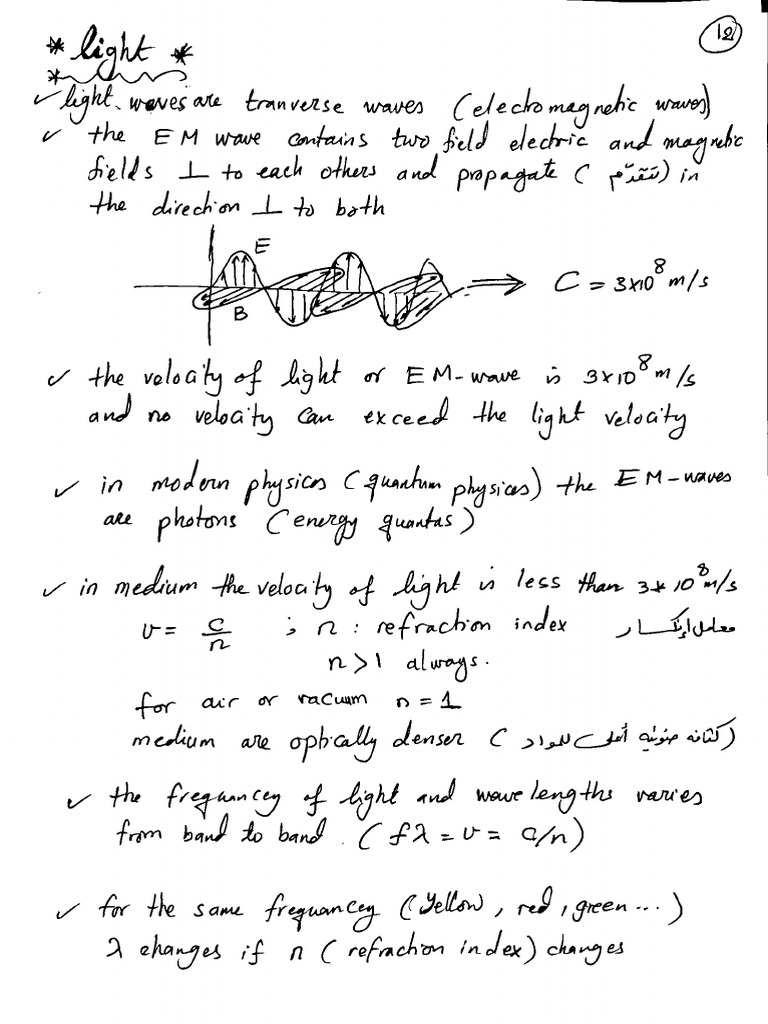 12
* light *
✓ light waves are tranverse waves (electromagnetic waves)
✓ the EM wave contains two field electric and magnetic
fields ⊥ to each others and propagate ( تتقدّم ) in
the direction ⊥ to both
E
B
C = 3×10⁸ m/s
✓ the velocity of light or EM-wave is 3×10⁸ m/s
and no velocity can exceed the light velocity
✓ in modern physics (quantum physics) the EM-waves
are photons (energy quantas)
✓ in medium the velocity of light is less than 3×10⁸ m/s
v = c/n ; n : refraction index معامل إنكسار
n>1 always.
for air or vacuum n = 1
medium are optically denser ( كثافه ضوئيه أعلى للمواد )
✓ the frequancey of light and wavelengths varies
from band to band. (fλ = v = c/n)
✓ for the same frequancey (yellow, red, green ... )
λ changes if n (refraction index) changes